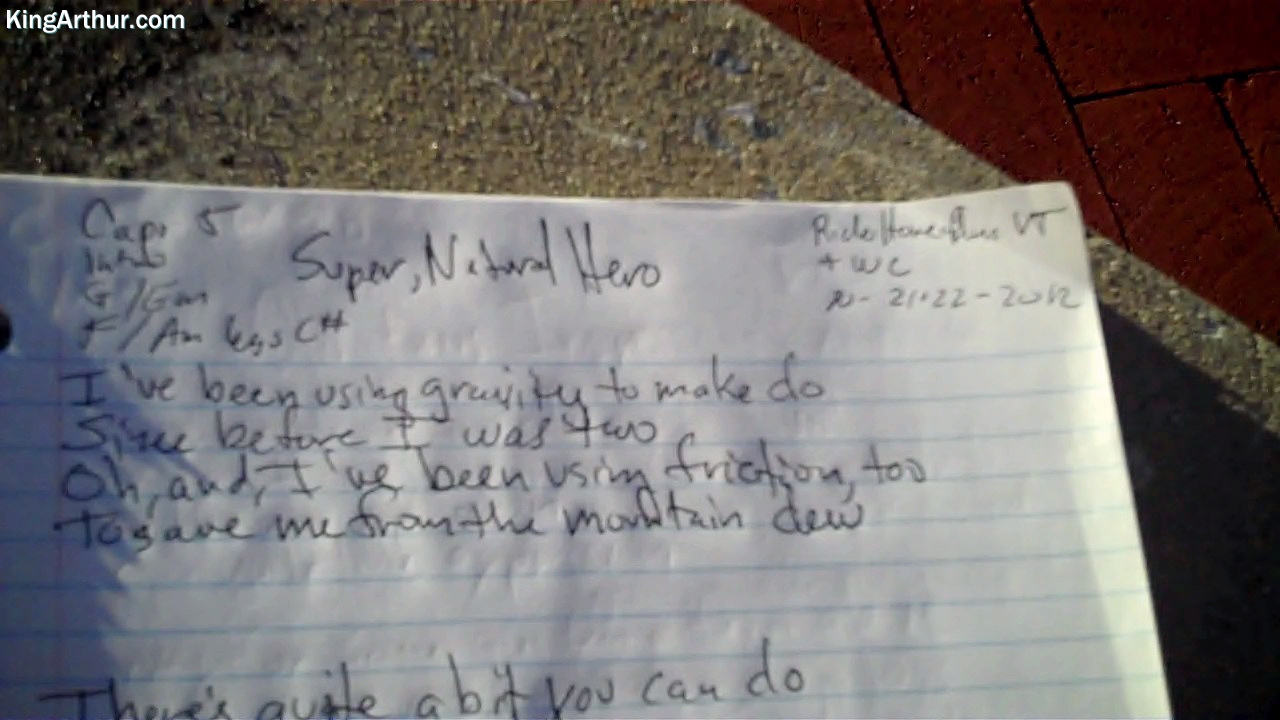 KingArthur.com
Capo 5
Intro
G/Gm
F/Am C#
Super, Natural Hero
VT
+ WC
10-21+22-2012
I've been using gravity to make do
Since before I was two
Oh, and, I've been using friction, too
To save me from the mountain dew
There's quite a bit you can do